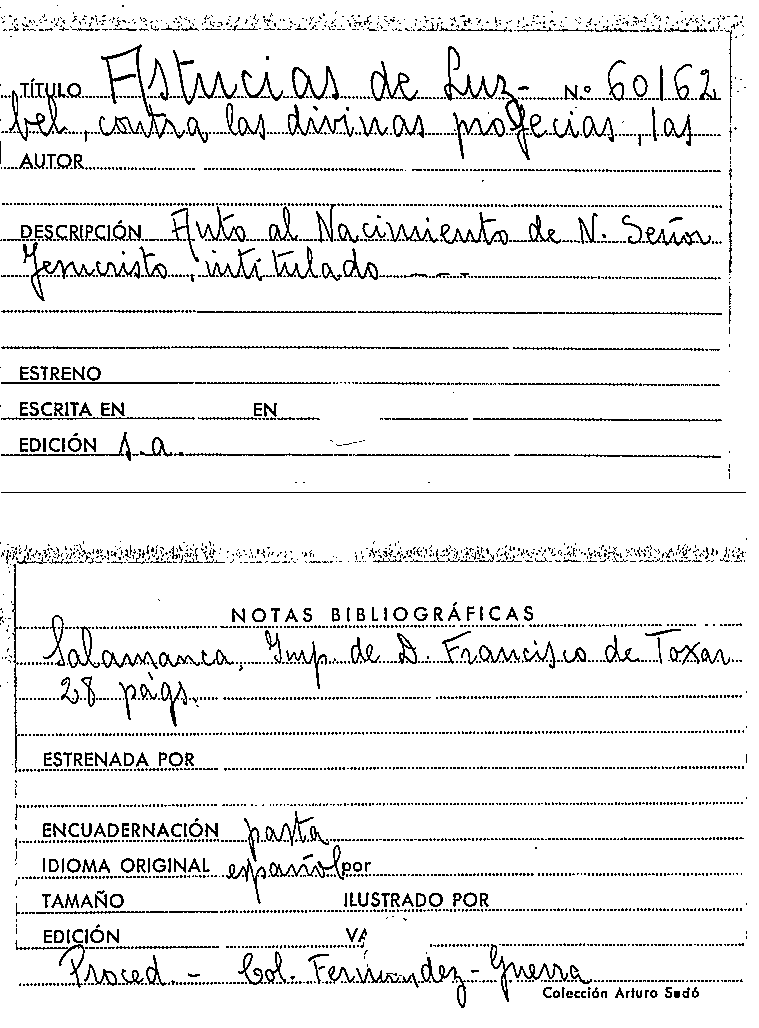 TÍTULO Astucias de Luz- N.º 60162
bel, contra las divinas profecias, las
AUTOR
DESCRIPCIÓN Auto al Nacimiento de N. Señor
Jesucristo, intitulado ---
ESTRENO
ESCRITA EN EN
EDICIÓN s.a.
NOTAS BIBLIOGRÁFICAS
Salamanca, Imp. de D. Francisco de Toxar
28 págs.
ESTRENADA POR
ENCUADERNACIÓN pasta
IDIOMA ORIGINAL español por
TAMAÑO ILUSTRADO POR
EDICIÓN
Proced. - Col. Fernández-Guerra
Colección Arturo Sedó